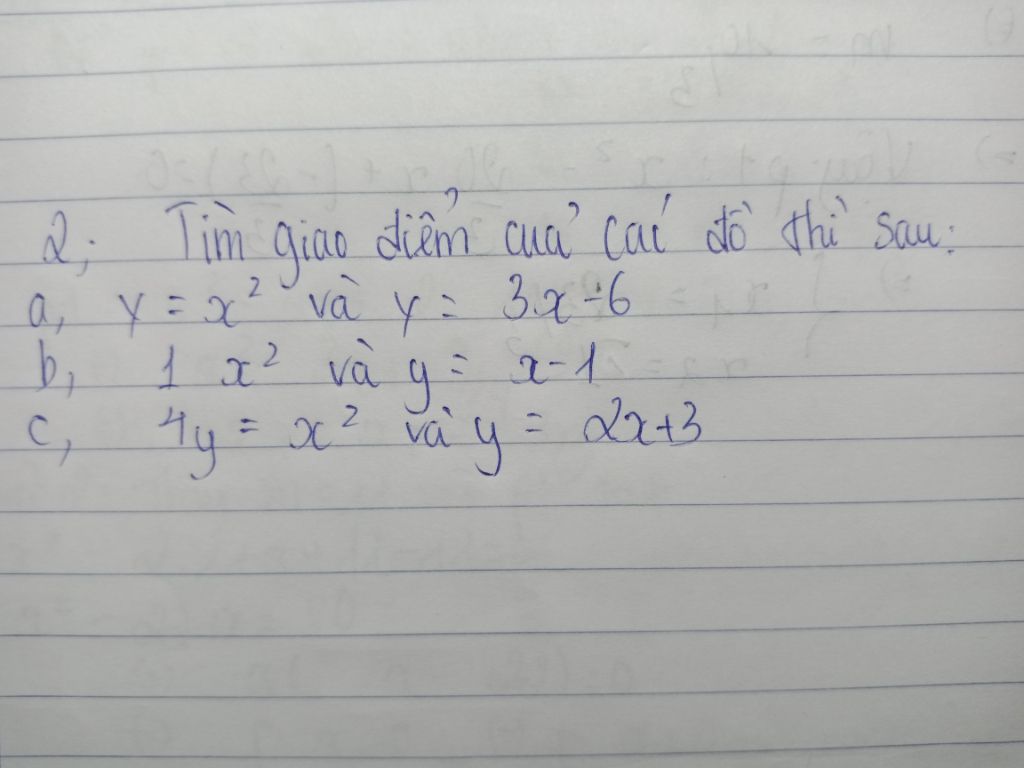 2; Tìm giao điểm của các đồ thì sau:
a, y = x² và y = 3x-6
b, 1 x² và y = x-1
c, 4y = x² và y = 2x+3